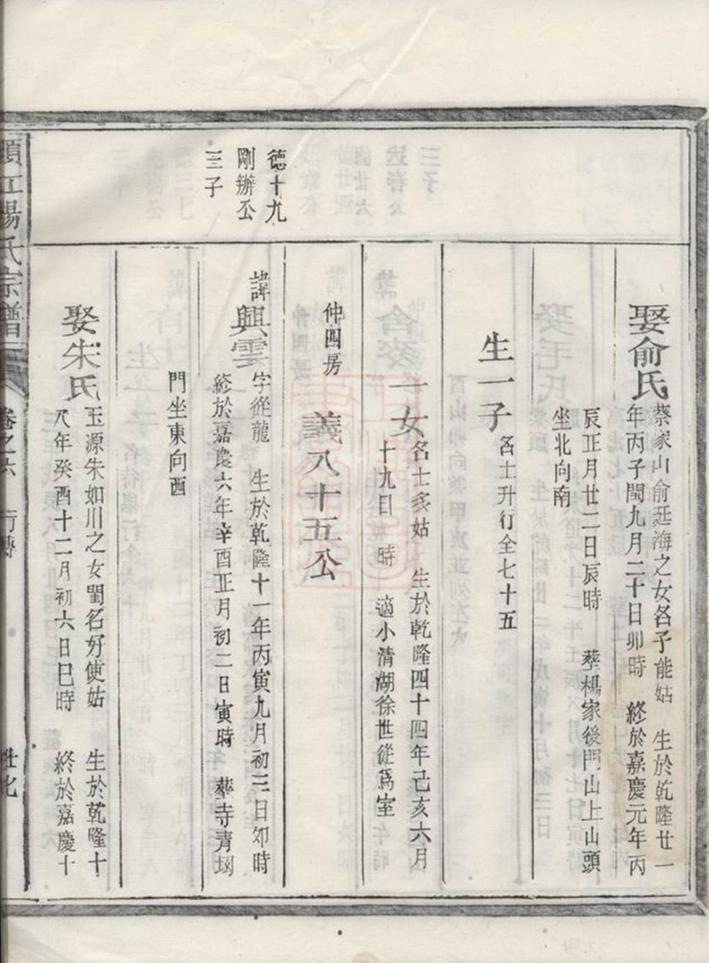 娶俞氏
蔡家山俞廷海之女名子能姑 生於乾隆廿一
年丙子閏九月二十日卯時 終於嘉慶元年丙
辰正月廿二日辰時 葬楊家後門山上山頭
坐北向南
生一子 名士升行全七十五
一女 名士多姑 生於乾隆四十四年己亥六月
十九日 時 適小清湖徐世從爲室
德十九
剛辦公
三子
仲四房
義八十五公
諱興雲
字從龍 生於乾隆十一年丙寅九月初三日卯時
終於嘉慶六年辛酉正月初二日寅時 葬寺青塢
門坐東向西
娶朱氏
玉源朱如川之女閨名好使姑 生於乾隆十
八年癸酉十二月初六日巳時 終於嘉慶十
江楊氏宗譜
卷之六
行傳